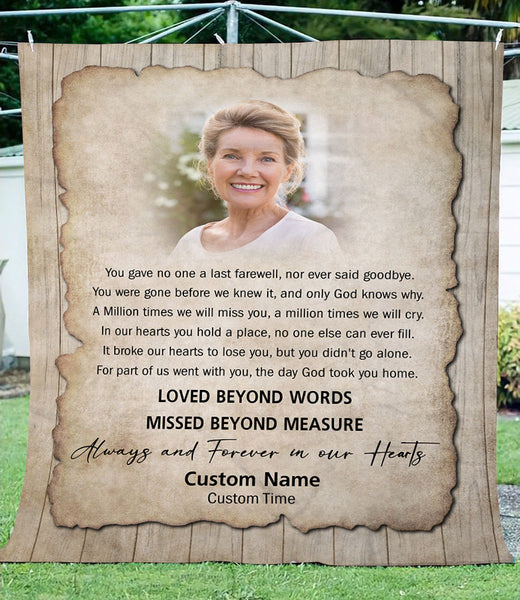 You gave no one a last farewell, nor ever said goodbye.
You were gone before we knew it, and only God knows why.
A Million times we will miss you, a million times we will cry.
In our hearts you hold a place, no one else can ever fill.
It broke our hearts to lose you, but you didn't go alone.
For part of us went with you, the day God took you home.
LOVED BEYOND WORDS
MISSED BEYOND MEASURE
Always and Forever in our Hearts
Custom Name
Custom Time